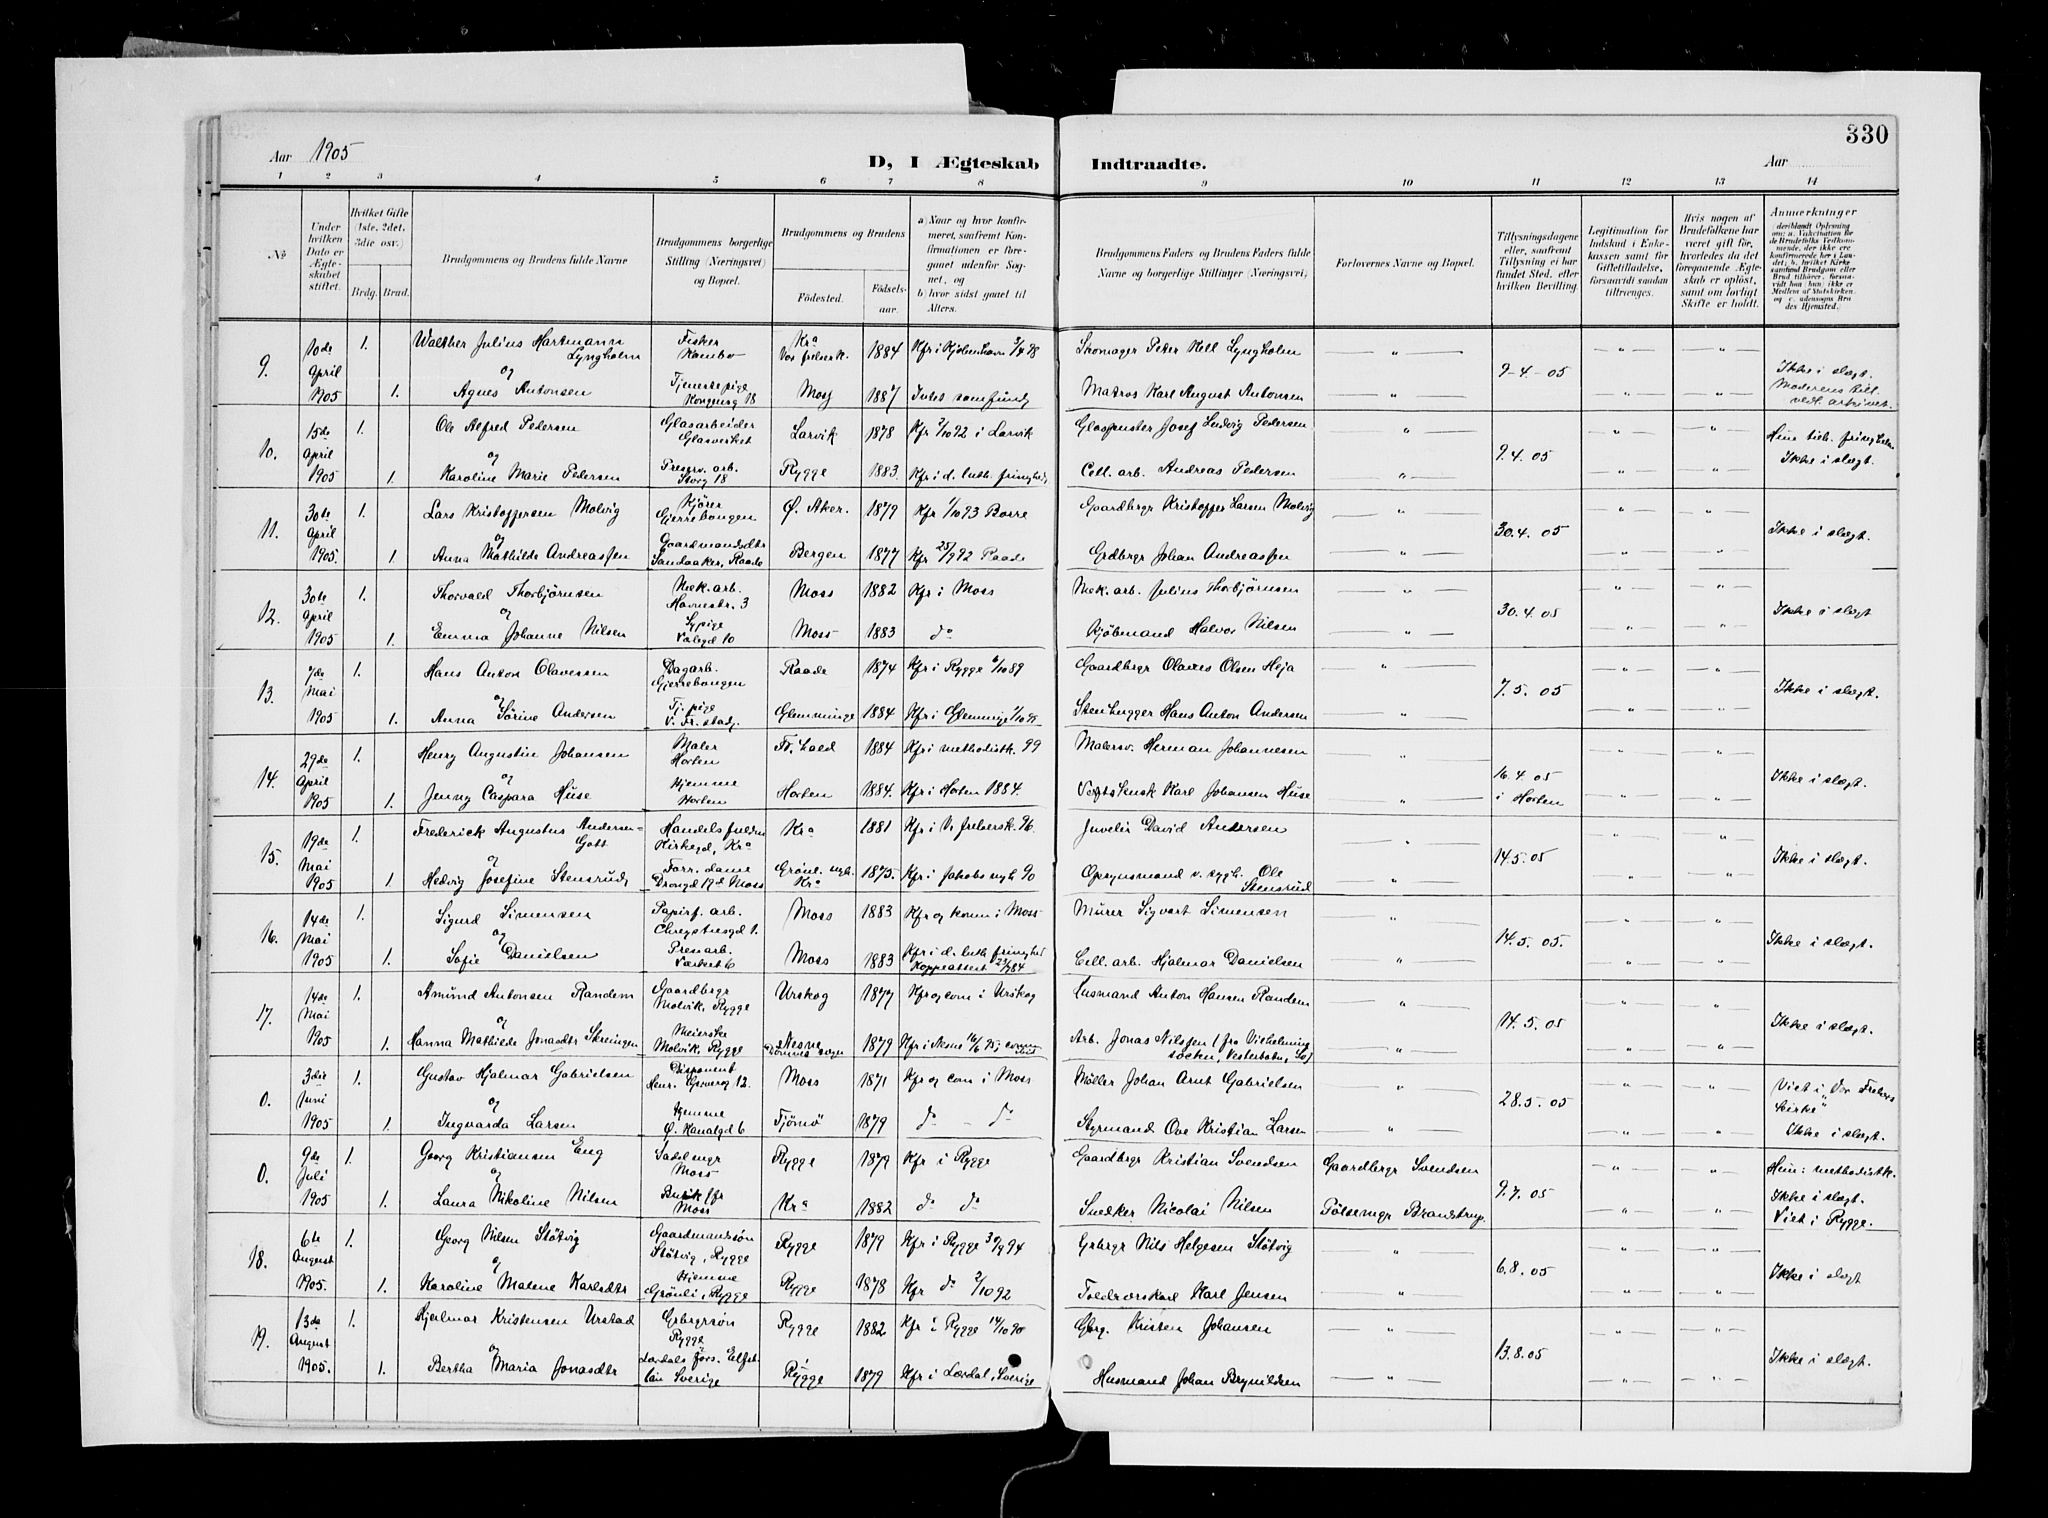 330
Aar 1905
D, I Ægteskab Indtraadte.
Aar
1 2 3 4 5 6 7 8 9 10 11 12 13 14
№
Under hvilken Dato er Ægteskabet stiftet.
Hvilket Gifte (1ste, 2det, 3die osv.)
Brdg. Brud.
Brudgommens og Brudens fulde Navne
Brudgommens borgerlige Stilling (Næringsvei) og Bopæl.
Brudgommens og Brudens
Fødested. Fødselsaar.
a) Naar og hvor konfirmeret, saafremt Konfirmationen er foregaaet udenfor Sognet, og
b) hvor sidst gaaet til Alters.
Brudgommens Faders og Brudens Faders fulde Navne og borgerlige Stillinger (Næringsvei)
Forlovernes Navne og Bopæl.
Tillysningsdagene eller, saafremt Tillysning ei har fundet Sted, efter hvilken Bevilling.
Legitimation for Indskud i Enkekassen samt for Giftetilladelse, forsaavidt saadan tiltrænges.
Hvis nogen af Brudefolkene har været gift før, hvorledes da det foregaaende Ægteskab er opløst, samt om lovligt Skifte er holdt.
Anmærkninger
deriblandt Oplysning om: a. Vakcination for de Brudefolks Vedkommende, der ikke ere konfirmerede her i Landet; b. hvilken Kirke samfund Brudgom eller Brud tilhører, forsaavidt han (hun) ikke er Medlem af Statskirken, og c. udensogns Brudes Hjemsted.
9. 10de April 1905 1. Walther Julius Hartmann Lyngholm Fisker Kambo Kra Vor frelsers k. 1884 Kfr i Kjøbenhavn 3/4 98 Skomager Peter Kell Lyngholm 9-4-05 Ikke i slægt.
og 1. Agnes Antonsen Tjenestepige Kongensg 18 Moss 1887 Intet samfund Matros Karl August Antonsen Moderens till. vedl. arkivet.
10. 15de April 1905 1. Ole Alfred Pedersen Glasarbeider Glasverket Larvik 1878 Kfr 2/10 92 i Larvik Glaspuster Josef Ludvig Pedersen 9.4.05
og 1. Karoline Marie Pedersen Preserv. arb. Storg 18 Rygge 1883. Kfr i d. luth. frimgh. Cell. arb. Andreas Pedersen Ikke i slægt.
11. 30te April 1905. 1. Lars Kristoffersen Molvig Kjører Gjerrebongen Ø. Aker. 1879 Kfr 1/10 93 Borre Gaardbrgr Kristoffer Larsen Molvig 30.4.05 Ikke i slægt.
og 1. Anna Mathilde Andreassen Gaardmandsdtr Sandaaker, Raade Bergen 1877 Kfr 25/9 92 Raade Grdbrgr Johan Andreassen
12. 30te April 1905 1. Thorvald Thorbjørnsen Mek. arb. Havnestr. 3 Moss 1882 Kfr i Moss Mek. arb. Julius Thorbjørnsen 30.4.05 Ikke i slægt
og 1. Emma Johanne Nilsen Sypige Valegd 10 Moss 1883 do Kjøbmand Halvor Nilsen
13. 7de Mai 1905 1. Hans Anton Olavessen Dagarb. Gjerrebongen Raade 1874 Kfr i Rygge 6/10 89 Gaardbrgr Olaves Olsen Heja 7.5.05 Ikke i slægt.
og 1. Anna Sørine Andersen Tj. pige V. Fr. stad Glemminge 1884 Kfr i Glemminge 1/10 98 Stenhugger Hans Anton Andersen
14. 29de April 1905 1. Henry Augustin Johansen Maler Horten Fr. hald 1884 Kfr i methodistk. 99 Malersv. Herman Johannesen 16.4.05 i Horten Ikke i slægt.
og 1. Jenny Caspara Huse Hjemme Horten Horten 1884. Kfr i Horten 1884. Karl Johansen Huse
15. 19de Mai 1905 1. Frederick Augustus Andersen-Gott Handelsfuldm Kirkegd, Kra Kra 1881 Kfr i V. frelsersk. 96. Juvelir David Andersen 14.5.05 Ikke i slægt.
og 1. Hedvig Josefine Stensrud Forr. dame Drongd 19d Moss Grønl. mgh. Kra 1875. Kfr i Jakobs mgh 90 Opsynsmand v. sygh. Ole Stensrud
16. 14de Mai 1905 1. Sigurd Simensen Papirf. arb. Chrystiesgd 1. Moss 1883 Kfr og kom i Moss Murer Sigvart Simensen 14.5.05. Ikke i slægt.
og 1. Sofie Danielsen Pres arb. Værket 6 Moss 1883 Kfr i d. luth. frimgh. Koppeattest 23/7 84 Cell. arb. Hjalmar Danielsen
17. 14de Mai 1905 1. Amund Antonsen Randem Gaardbrgr Molvik, Rygge Urskog 1877 Kfr og com i Urskog Husmand Anton Hansen Randem 14.5.05 Ikke i slægt.
og 1. Hanna Mathilde Jonasdtr Skeringen Meierske Molvik, Rygge Nesne Dønnes sogn 1879 Kfr i Nesne 16/6 95, Arb. Jonas Nilssen (fra Vilhelmina socken, Vesterbotn,
0. 3die Juni 1905 1. Gustav Hjalmar Gabrielsen Disponent Henr. Gernerg 12. Moss 1871 Kfr og com i Moss Møller Johan Arnt Gabrielsen 28.5.05 Viet i "Vor Frelsers Kirke"
og 1. Ingvarda Larsen Hjemme Ø. Kanalgd 6 Tjømø 1879 do - do Styrmand Ove Kristian Larsen Ikke i slægt.
0. 9de Juli 1905 1. Georg Kristiansen Eng Sadelmgr Moss Rygge 1879 Kfr i Rygge Gaardbrgr Kristian Svendsen Gaardbrgr Svendsen 9.7.05 Hun: methodistk.
og 1. Laura Nikoline Nilsen Butik fr Moss Kra 1882 do do Snedker Nicolai Nilsen Pølsemgr Brandstrup Ikke i slægt. Viet i Rygge.
18. 6te August 1905. 1. Georg Nilsen Støtvig Gaardmandssøn Støtvig, Rygge Rygge 1879 Kfr i Rygge 30/9 94 Grbrgr Nils Helgesen Støtvig 6.8.05 Ikke i slægt
og 1. Karoline Malene Karlsdtr Hjemme Grønli, Rygge Rygge 1878 Kfr do 2/10 92 Føderaaskarl Karl Jensen
19. 13de August 1905. 1. Hjalmar Kristensen Urstad Grbrgrsøn Rygge Rygge 1882 Kfr i Rygge 14/10 90 Gbrg. Kristen Johansen 13.8.05 Ikke i slægt.
og 1. Bertha Maria Jonasdtr Lærdals førs. Elfsborg län Sverige Rygge 1879 Kfr i Lærdal, Sverige Husmand Johan Brynildsen